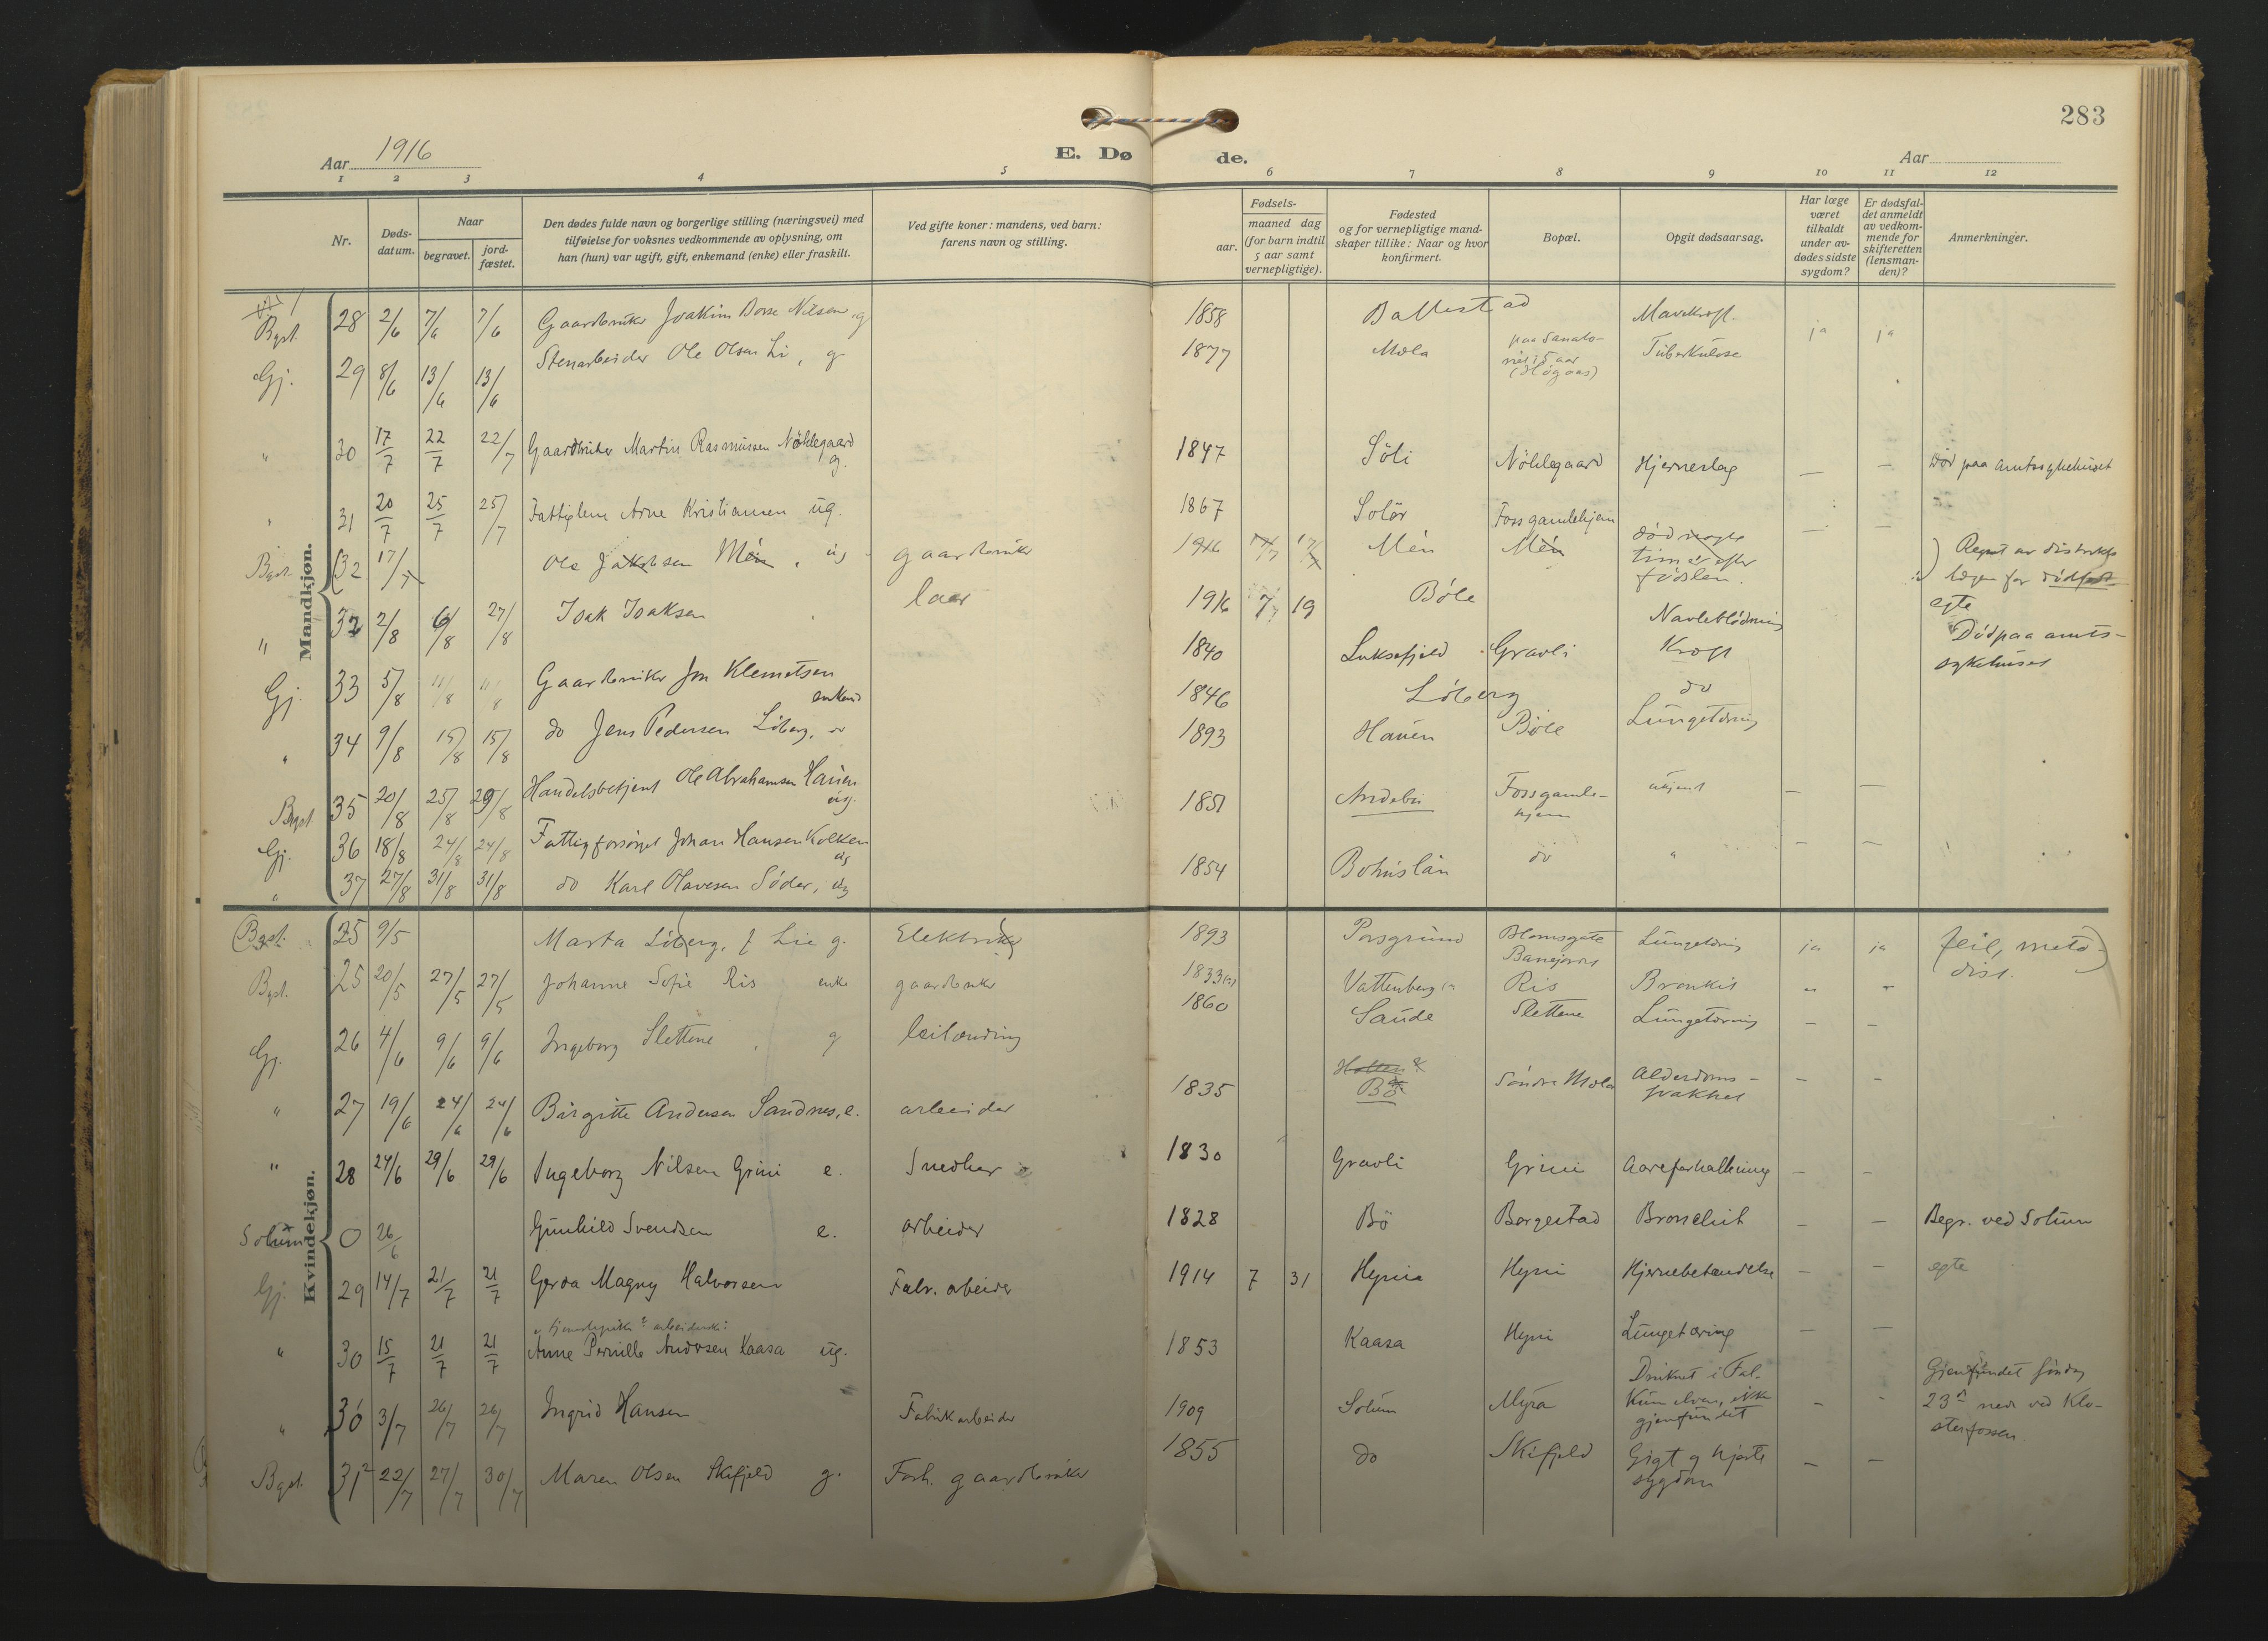 283
Aar 1916
E. Dø
de.
Aar
1 2 3 4 5 6 7 8 9 10 11 12
Nr.
Døds-
datum.
Naar
begravet.
jord-
fæstet.
Den dødes fulde navn og borgerlige stilling (næringsvei) med
tilføielse for voksnes vedkommende av oplysning, om
han (hun) var ugift, gift, enkemand (enke) eller fraskilt.
Ved gifte koner: mandens, ved barn:
farens navn og stilling.
aar.
Fødsels-
maaned dag
(for barn indtil
5 aar samt
vernepligtige).
Fødested
og for vernepligtige mand-
skaper tillike: Naar og hvor
konfirmert.
Bopæl.
Opgit dødsaarsag.
Har læge
været
tilkaldt
under av-
dødes sidste
sygdom?
Er dødsfal-
det anmeldt
av vedkom-
mende for
skifteretten
(lensman-
den)?
Anmerkninger.
Mandkjøn.
Bgst. 28 2/6 7/6 7/6 Gaardbruker Joakim Nilsen, g 1858 Ballestad Mavekræft. ja ja
Gj. 29 8/6 13/6 13/6 Stenarbeider Ole Olsen Li, g 1877 Mæla paa Sanato-
riet i 5 aar
Tuberkulose
" 30 17/7 22/7 22/7 Gaardbruker Martin Rasmussen Nöklegaard
g. 1847 Söli Nöklegaard Hjerneslag — — Död paa amtssykehuset
" 31 20/7 25/7 25/7 Fattiglem Arne Kristiansen ug. 1867 Solör Foss gamlehjem — —
Bgst. 32 17/7 Ole Jakobsen Méen, ug gaardbruker 1916 17/7 Méen Méen död nogle
timer efter
födslen.
" 32 2/8 6/8 27/8 Isak Isaksen 1916 7 19 Böle Navleblödning egte
Gj. 33 5/8 11/8 11/8 Gaardbruker Jon Klemetsen
enkem 1840 Luksefjeld Gravli Kræft Död paa amts-
sykehuset
" 34 9/8 15/8 15/8 do Jens Pedersen Löberg, 1846 Löberg do
Bgst. 35 20/8 25/8 29/8 Handelsbetjent Ole Abrahamsen Hauen
ug. 1893 Hauen Böle Lungetæring
Gj. 36 18/8 24/8 24/8 Fattigforsörget Johan Hansen Kolken
ug 1851 Andebu Foss gamle-
hjem
ukjent — —
" 37 27/8 31/8 31/8 do Karl Olavesen Söder, ug 1854 Bohuslän do " — —
Kvindekjøn.
(Bgst. 25 9/5 Marta Löberg, f Lie g. Elektriker 1893 Porsgrund Blomsgate
Lungetæring ja ja feil, meto-
dist.)
Bgst. 25 20/5 27/5 27/5 Johanne Sofie Ris enke gaardbruker 1833 Vattenberg Ris Bronkit " "
Gj. 26 4/6 9/6 9/6 Ingeborg Slettene, g leilænding 1860 Saude Slettene Lungetæring — —
" 27 19/6 24/6 24/6 Birgitte Andersen Sandnes, e. arbeider 1835 Bö Söndre Mæla Alderdoms-
svakhet — —
" 28 24/6 29/6 29/6 Ingeborg Nilsen Grini e. Snedker 1830 Gravli Grini Aareforkalkning — —
Solum 0 26/6 Gunhild Svendsen e. arbeider 1828 Bö Borgestad Bronchit — — Begr. ved Solum
Gj. 29 14/7 21/7 21/7 Gerda Magny Halvorsen Fabr. arbeider 1914 7 31 Hyni Hyni Hjernebetændelse — — egte
" 30 15/7 21/7 21/7 Anne Pernille Andersen Kaasa ug. 1853 Kaasa Hyni Lungetæring — —
" 30 3/7 26/7 26/7 Ingrid Hansen Fabrikarbeider 1909 Solum Myra Druknet i Fal-
kum elven, ikke
gjenfundet — — Gjenfundet söndag
23de ved Klo-
sterfossen.
Bgst. 31 22/7 27/7 30/7 Maren Olsen Skifjeld g. Forh. gaardbruker 1855 do Skifjeld Gigt og hjerte
sygdom — —